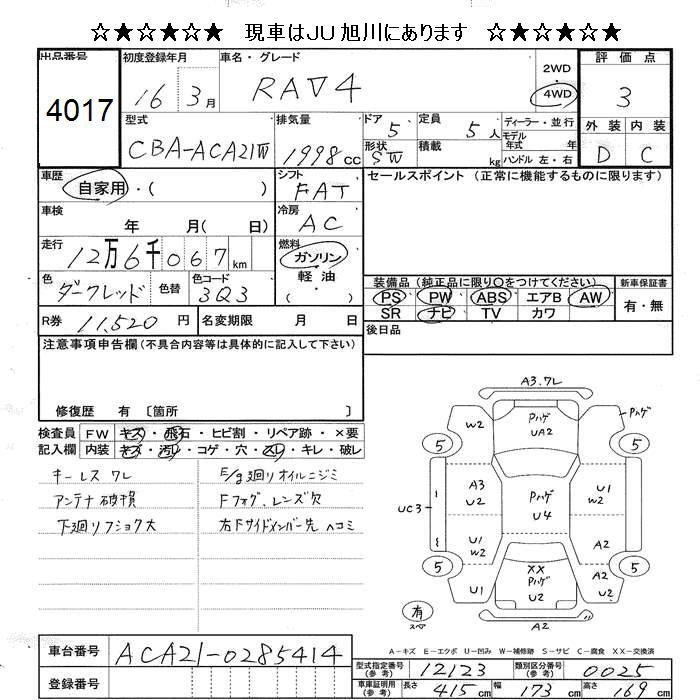 ☆★☆★☆ 現車はJU旭川にあります ☆★☆★☆
出品番号 4017
初度登録年月 16 3月
車名・グレード RAV4
2WD 4WD
評価点 3
外装 内装
D C
型式 CBA-ACA21W
排気量 1998cc
ドア 5 定員 5人
形状 SW 積載 kg
ディーラー・並行
モデル年式 年式
ハンドル 左・右
車歴 自家用・( )
シフト FAT
セールスポイント (正常に機能するものに限ります)
車検 年 月( 日)
冷房 AC
走行 12万6千067km
燃料 ガソリン 軽油 ・( )
色 ダークレッド 色替 色コード 3Q3
装備品 (純正品に限り○をつけてください) 新車保証書
PS PW ABS エアB AW 有・無
SR ナビ TV カワ
R券 11,520円 名変期限 月 日
後日品
注意事項申告欄(不具合内容等は具体的に記入して下さい)
修復歴 有 〔箇所 〕
検査員 FW キズ・飛石・ヒビ割・リペア跡・×要
記入欄 内装 キズ・汚レ・コゲ・穴・スレ・キレ・破レ
キーレスワレ E/g廻りオイルニジミ
アンテナ破損 Fフォグ、レンズ欠
下廻リフショク大 右Fサイドメンバー先ヘコミ
A3.ワレ
W2 Pハゲ UA2 Pハゲ
5 5
A3 U2 Pハゲ U4 U1 W2
UC3
U1 W2 A2
5 XX Pハゲ U2 5
U1 A2 U2
有 スペア
A2
A-キズ E-エクボ U-凹み W-補修跡 S-サビ C-腐食 XX-交換済
車台番号 ACA21-0285414
型式指定番号(参考) 12123 類別区分番号(参考) 0025
登録番号
車車証明用(参考) 長さ 415cm 幅 173cm 高さ 169cm